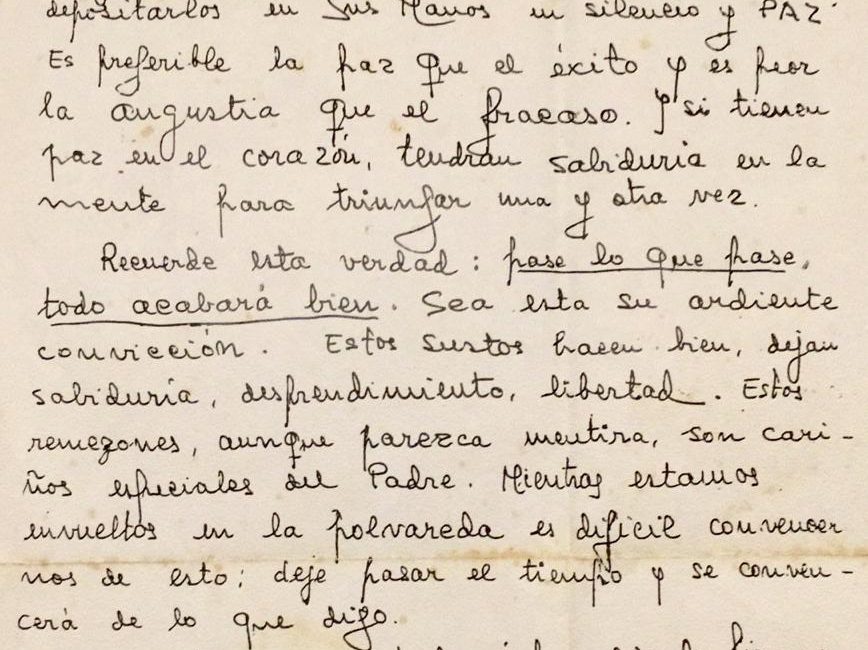 depositarlos en Sus Manos en silencio y PAZ.
Es preferible la paz que el éxito y es peor
la angustia que el fracaso. Y si tienen
paz en el corazón, tendrán sabiduría en la
mente para triunfar una y otra vez.
Recuerde esta verdad: pase lo que pase,
todo acabará bien. Sea esta su ardiente
convicción. Estos sustos hacen bien, dejan
sabiduría, desprendimiento, libertad. Estos
remezones, aunque parezca mentira, son cari-
ños especiales del Padre. Mientras estamos
envueltos en la polvareda es difícil convencer
nos de esto; deje pasar el tiempo y se conven-
cerá de lo que digo.